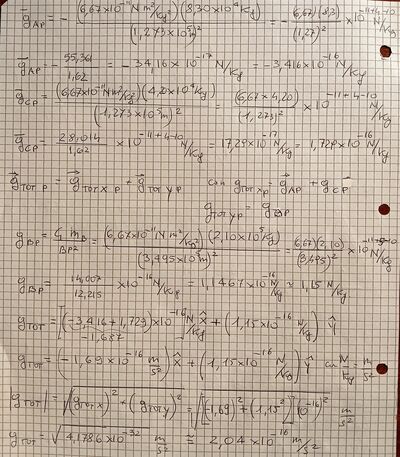 ḡ_AP = - (6,67×10⁻¹¹ N m²/kg²)(8,30×10⁴ kg) / (1,273×10⁵ m)² = - (6,67)(8,3) / (1,27)² ×10⁻¹¹⁺⁴⁻¹⁰ N/kg
ḡ_AP = - 55,361 / 1,62 = -34,16×10⁻¹⁷ N/kg = -3,416×10⁻¹⁶ N/kg
ḡ_CP = (6,67×10⁻¹¹ N m²/kg²)(4,20×10⁴ kg) / (1,273×10⁵ m)² = (6,67×4,20) / (1,273)² ×10⁻¹¹⁺⁴⁻¹⁰ N/kg
ḡ_CP = 28,014 / 1,62 ×10⁻¹¹⁺⁴⁻¹⁰ N/kg = 17,29×10⁻¹⁷ N/kg = 1,729×10⁻¹⁶ N/kg
g⃗_TOT P = g⃗_TOT X P + g⃗_TOT Y P con g_TOT X P = g⃗_AP + g⃗_CP
g_TOT Y P = g_BP
g_BP = G m_B / BP² = (6,67×10⁻¹¹ N m²/kg²)(2,10×10⁵ kg) / (3,495×10⁵ m)² = 6,67)(2,10) / (3,495)² ×10⁻¹¹⁺⁵⁻¹⁰ N/kg
g_BP = 14,007 / 12,215 ×10⁻¹⁶ N/kg = 1,1467×10⁻¹⁶ N/kg ≅ 1,15 N/kg
g_TOT = [(-3,416+1,729)×10⁻¹⁶ N/kg] x̂ + (1,15×10⁻¹⁶ N/kg) ŷ
-1,687
g_TOT = (-1,69×10⁻¹⁶ m/s²) x̂ + (1,15×10⁻¹⁶ N/kg) ŷ con N/kg = m/s²
|g_TOT| = √((g_TOT x)² + (g_TOT y)²) = √([(-1,69)² + (1,15)²](10⁻¹⁶)²) m/s²
g_TOT = √(4,1786×10⁻³²) m/s² ≅ 2,04×10⁻¹⁶ m/s²